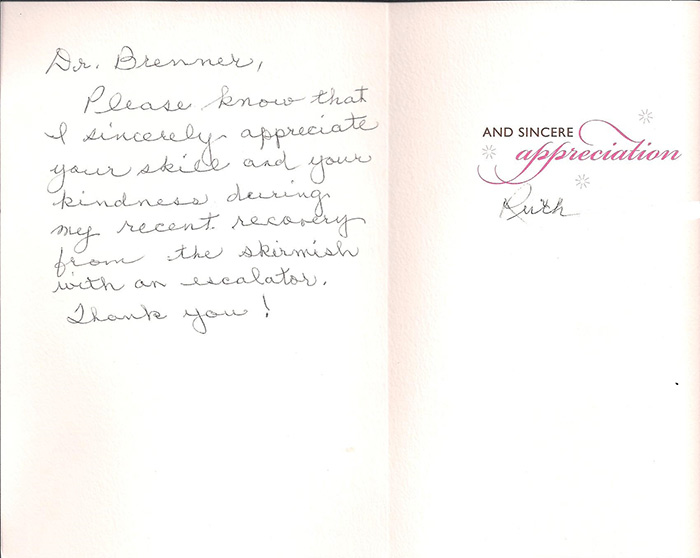 Dr. Brenner,
Please know that
I sincerely appreciate
your skill and your
kindness during
my recent recovery
from the skirmish
with an escalator.
Thank you!
AND SINCERE
appreciation
Ruth